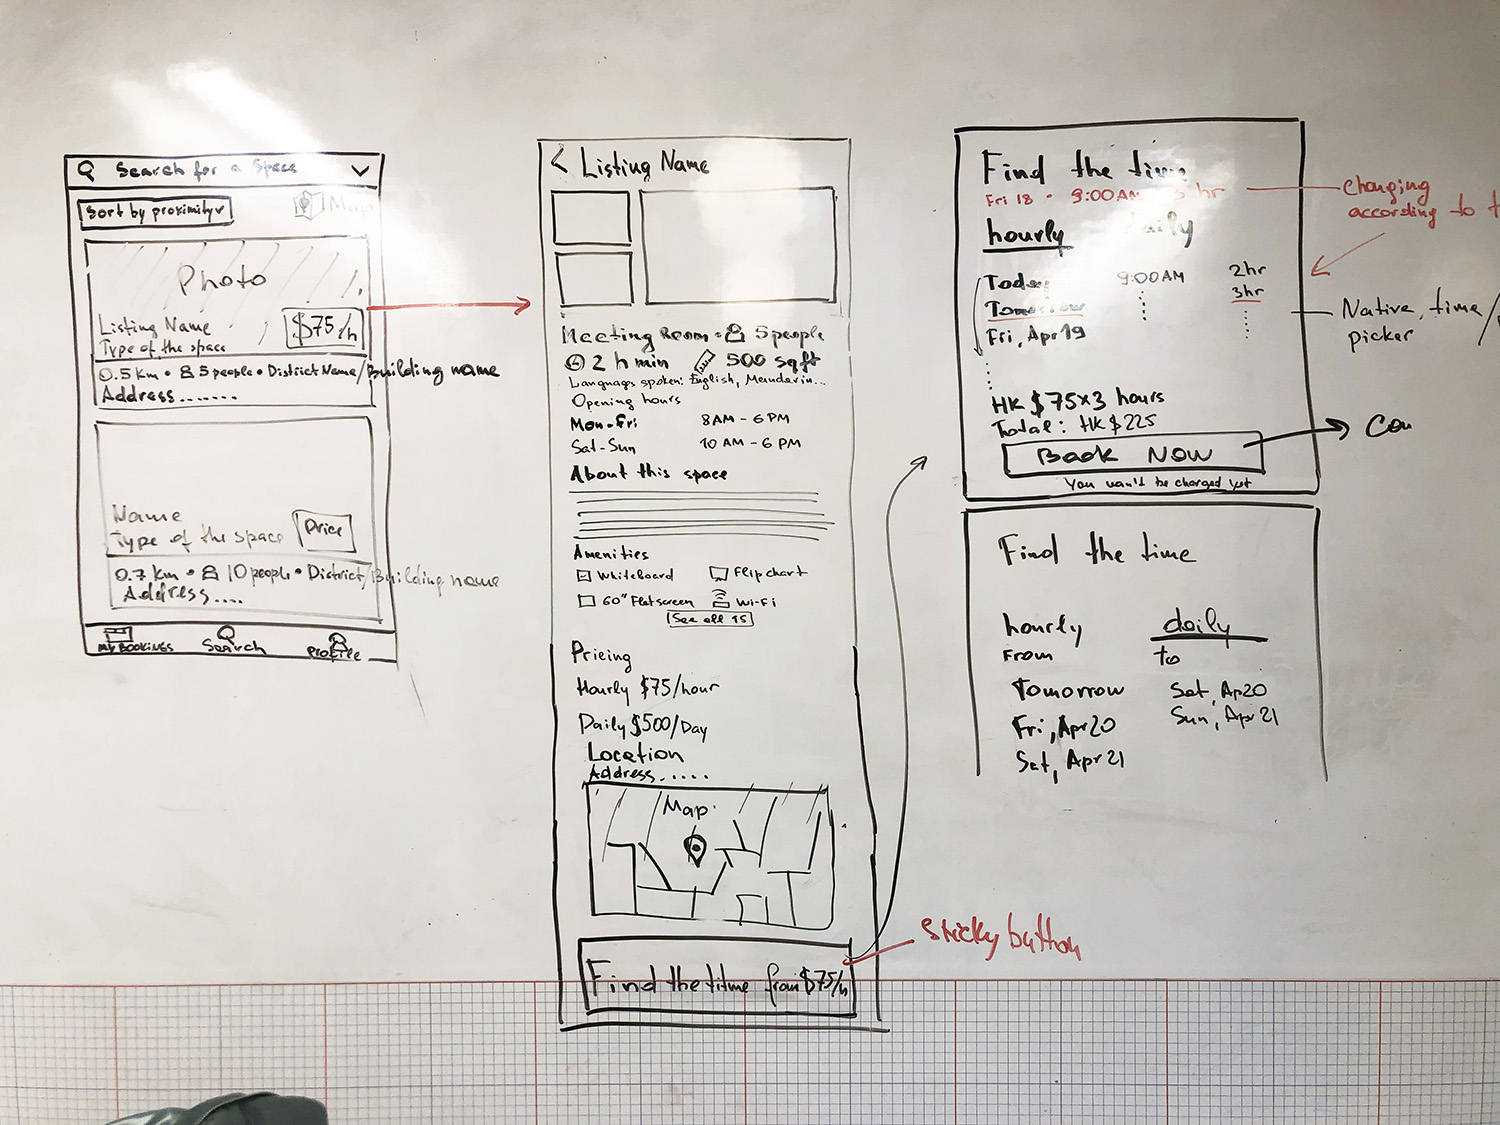 Search for a Space
Sort by proximity
Map
Photo
Listing Name
Type of the space
$75/h
0.5 km • 5 people • District Name/Building name
Address.......
Name
Type of the space
Price
0.7 km • 10 people • District/Building name
Address....
MY BOOKINGS
Search
PROFILE
< Listing Name
Meeting Room • 5 people
2 h min
500 sqft
Languages spoken: English, Mandarin...
Opening hours
Mon-Fri 8AM - 6PM
Sat-Sun 10 AM - 6 PM
About this space
Amenities
Whiteboard
Flipchart
60" Flatscreen
Wi-Fi
See all 15
Pricing
Hourly $75/hour
Daily $500/Day
Location
Address.....
Map
Find the titme from $75/h
Sticky button
Find the time
Fri 18 • 9:00AM 3 hr
hourly daily
Today 9:00AM 2hr
Tomorrow 3hr
Fri, Apr 19
HK $75x3 hours
Total: HK$225
Book Now
You won't be charged yet
Changing
according to t
Native, time/
picker
Con
Find the time
hourly daily
From to
Tomorrow Sat, Ap20
Fri, Apr20 Sun, Apr21
Sat, Apr21